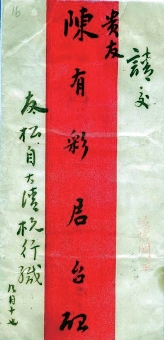 請交
貴友
陳有彩居台啟
友松自大清杭行緘
九月十七
16